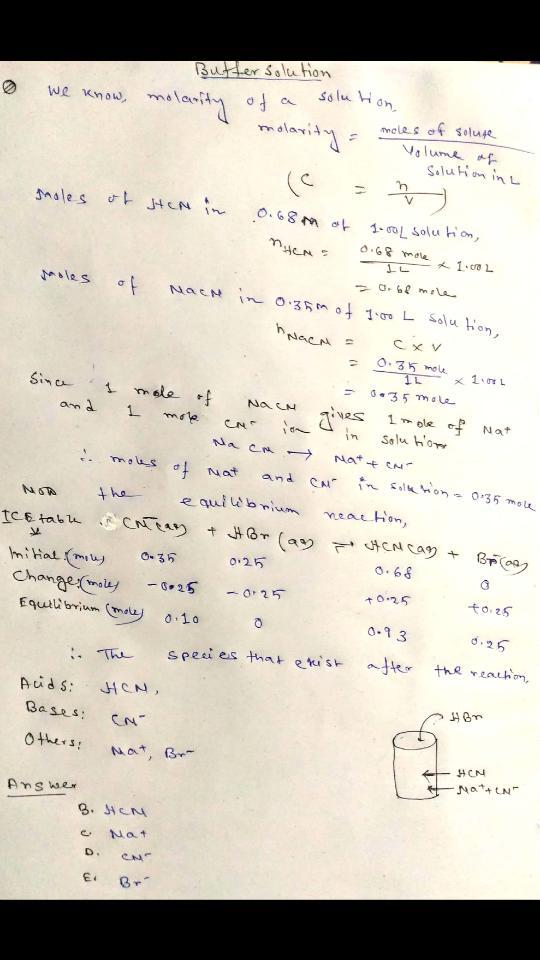 Buffer solution
We know, molarity of a solution,
molarity = moles of solute / Volume of Solution in L
(C = n/V)
Moles of HCN in 0.68 M of 1.00L solution,
nHCN = 0.68 mole / 1L × 1.00L
= 0.68 mole
Moles of NaCN in 0.35M of 1.00 L solution,
nNaCN = C × V
= 0.35 mole / 1L × 1.00L
= 0.35 mole
Since 1 mole of NaCN gives 1 mole of Na+
and 1 mole CN- ion in solution
NaCN → Na+ + CN-
∴ moles of Na+ and CN- in solution = 0.35 mole
Now the equilibrium reaction,
ICE table CN-(aq) + HBr (aq) ⇌ HCN(aq) + Br-(aq)
Initial:(mole) 0.35 0.25 0.68 0
Change:(mole) -0.25 -0.25 +0.25 +0.25
Equilibrium (mole) 0.10 0 0.93 0.25
∴ The species that exist after the reaction,
Acids: HCN,
Bases: CN-
Others: Na+, Br-
HBr
HCN
Na+ + CN-
Answer
B. HCN
C. Na+
D. CN-
E. Br-